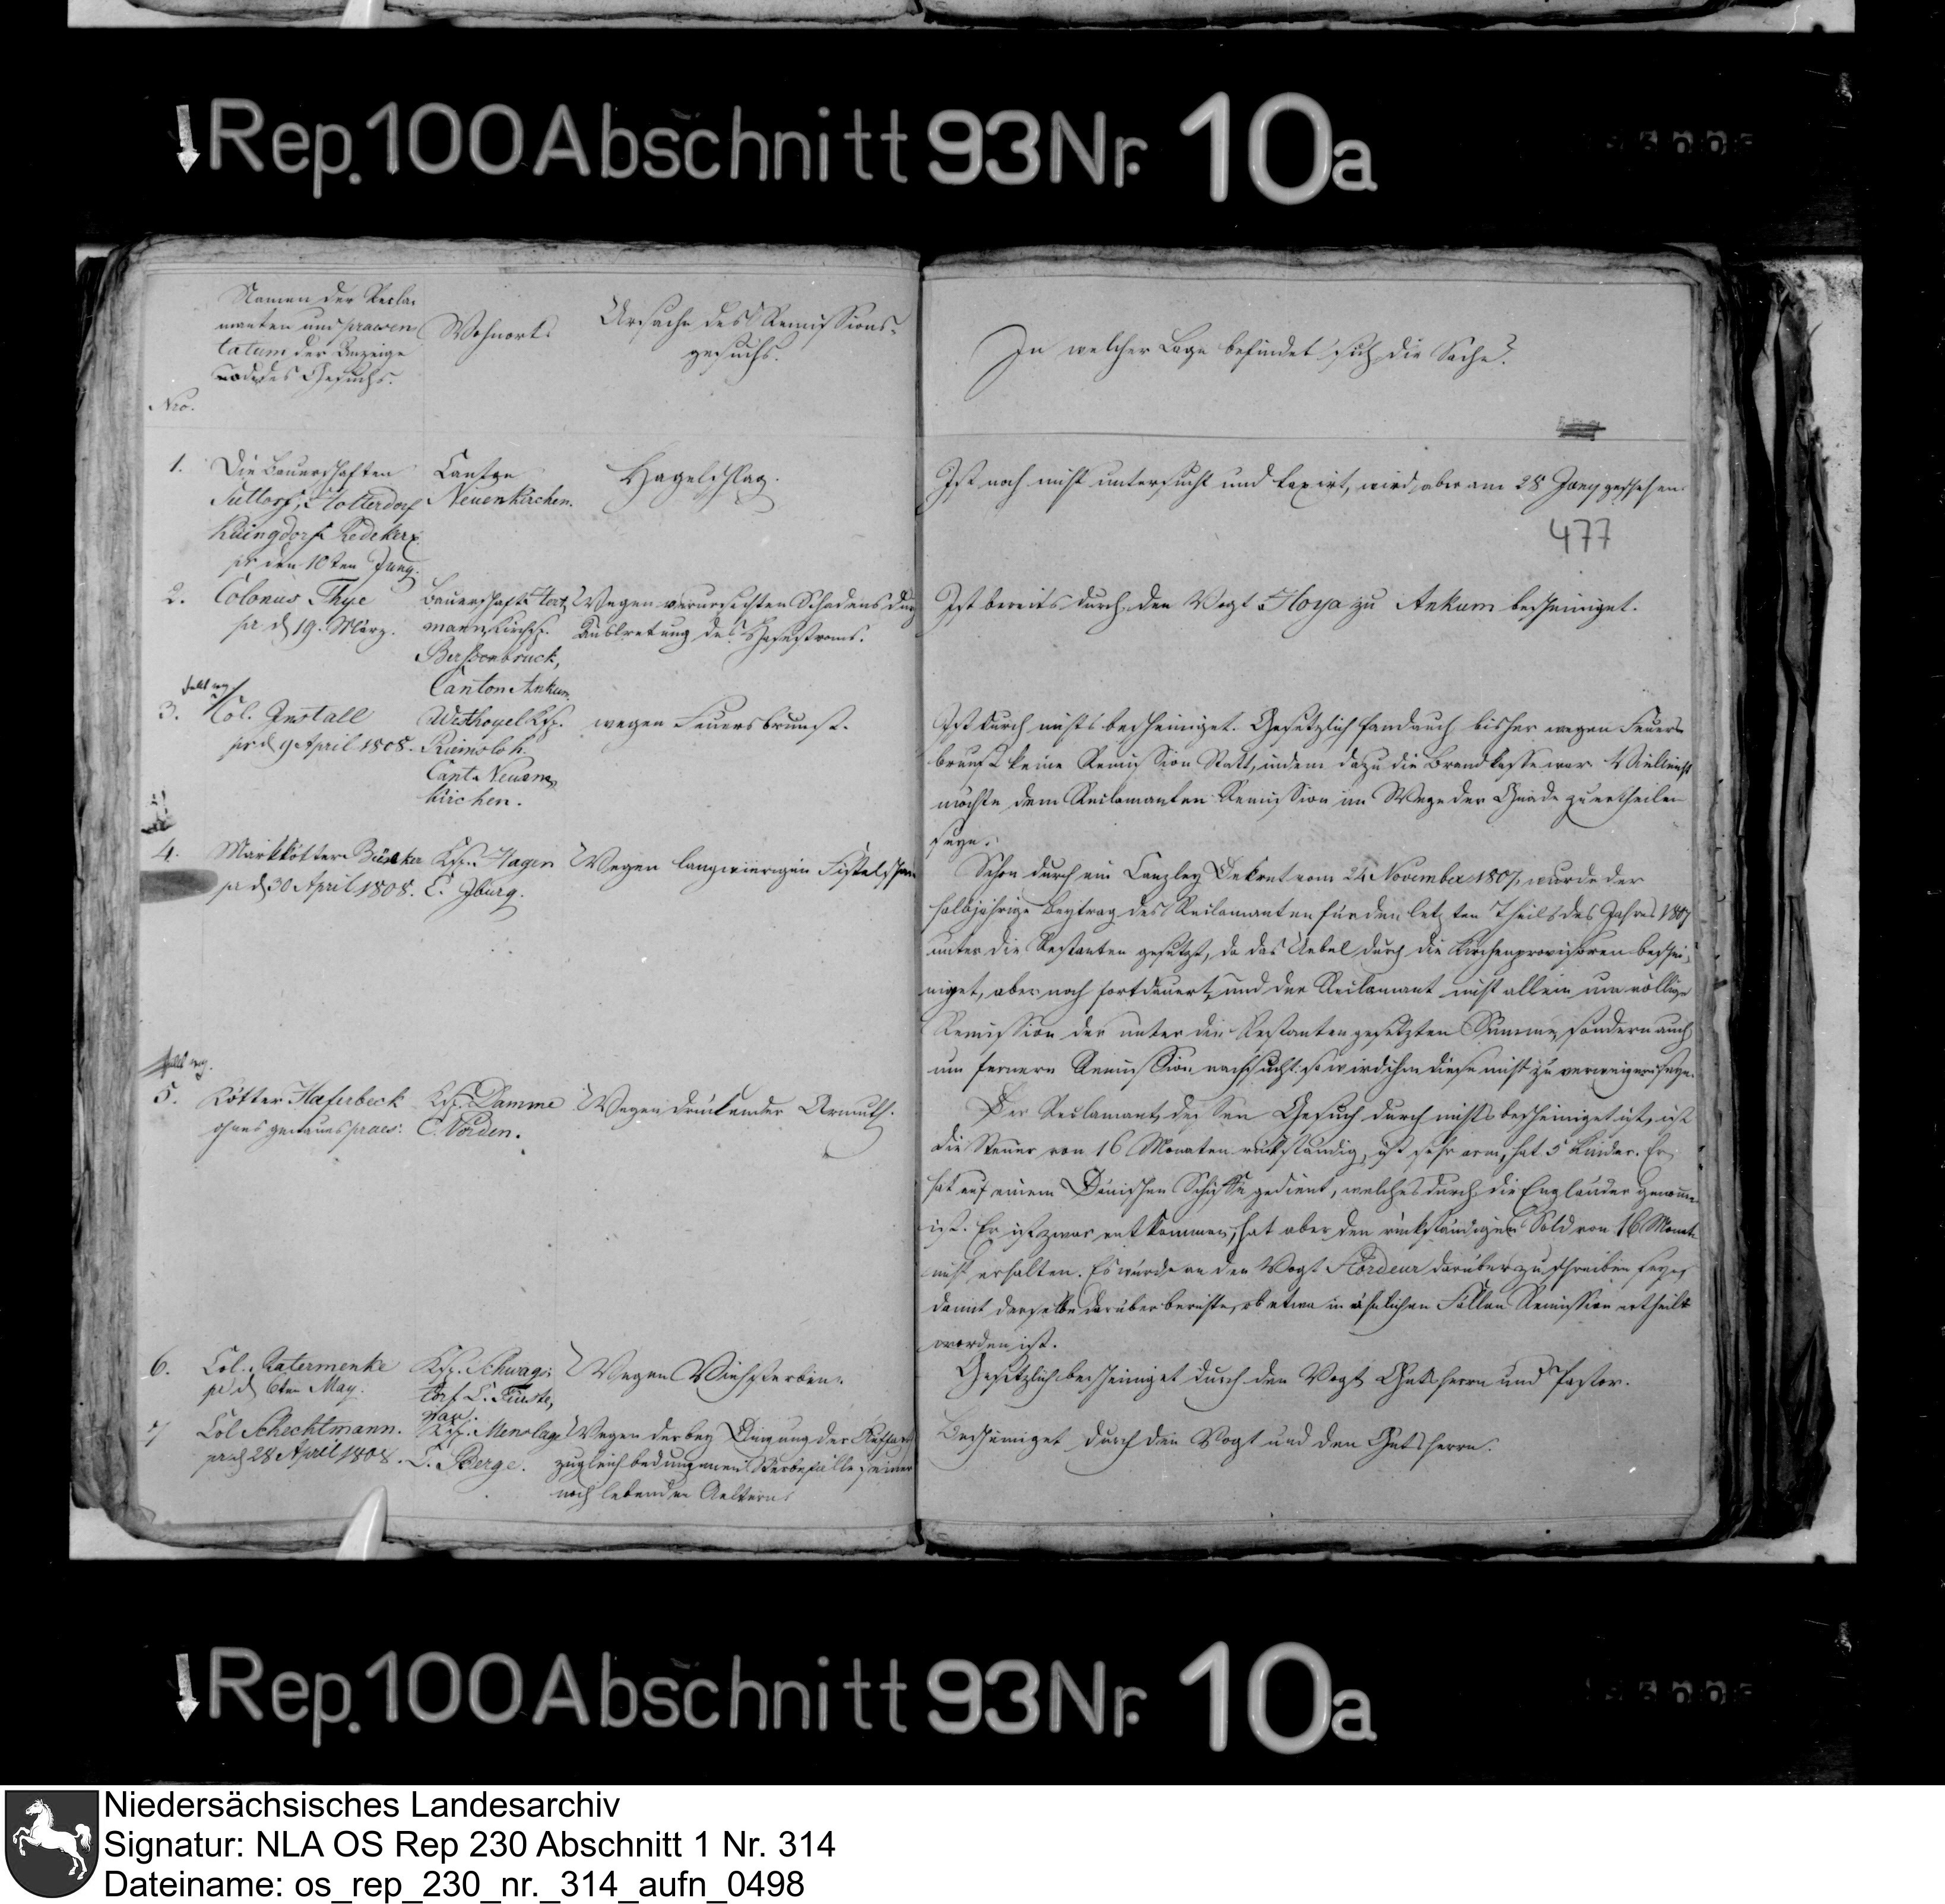 Rep. 100 Abschnitt 93 Nr. 10a
Namen der Recla-
manten und praesen-
tatum der Anzeige
oder des Gesuchs.
Nro.
Wohnort.
Ursache des Remissions-
gesuchs.
In welcher Lage befindet sich die Sache?
1. Die Bauerschaften
Suttorf, Holterdorf
Küingdorf Redeker
pr den 10ten Juny.
Canton
Neuenkirchen.
Hagelschlag.
Ist noch nicht untersucht und taxirt, wird aber am 28 Juny geschehen.
477
2. Colonus Thye
pr d 19. März.
Bauerschaft Hert
mann, Kirchsp.
Bersenbrück,
Canton Ankum.
Wegen verursachten Schadens durch
Austretung des Hasestroms.
Ist bereits durch den Vogt Hoya zu Ankum bescheiniget.
fällt weg
3. Col. Anstall
pr d 9 April 1808.
Westhoyel Ksp.
Riemsloh.
Cant. Neuen-
kirchen.
wegen Feuersbrunst.
Ist durch nichts bescheiniget. Gesetzlich fand auch bisher wegen Feuers-
brunst keine Remission Statt, indem dazu die Brandkasse war. Vielleicht
möchte dem Reclamanten Remission im Wege der Gnade zu ertheilen
seyn.
4. Markkötter
pr d 30 April 1808.
Ksp. Hagen
C. Iburg.
Wegen langwierigen Fistelschaden
Schon durch ein Canzley Dekret vom 24 November 1807, wurde der
halbjährige Beytrag des Reclamanten für den letzten Theil des Jahres 1807
unter die Restanten gesetzt, da das Uebel durch die Kirchenprovisoren beschei-
niget, aber noch fortdauert, und der Reclamant nicht allein um völlige
Remission der unter die Restanten gesetzten Summe, sondern auch
um fernere Remission nachsucht: so wird ihm diese nicht zu verweigern seyn.
fällt weg.
5. Kötter Haferbeck
ohne genaues praes:
Ksp. Damme
C. Vörden.
Wegen drückender Armuth.
Der Reclamant, dessen Gesuch durch nichts bescheiniget ist, ist
die Steuer von 16 Monaten rückständig, ist sehr arm, hat 5 Kinder. Er
hat auf einem Dänischen Schiffe gedient, welches durch die Engländer genommen
ist. Er ist zwar entkommen, hat aber den rückständigen Sold von 16 Monate
nicht erhalten. Es würde an den Vogt Hördeur darüber zu schreiben seyn,
damit derselbe darüber berichte, ob etwa in ähnlichen Fällen Remission ertheilt
worden ist.
6. Col. Katermenke
pr d 6ten May.
Ksp. Schwags-
torf C. Fürste,
nau.
Wegen Viehsterben.
Gesetzlich bescheiniget durch den Vogt Gutsherrn und Pastor.
7 Col Schechtmann.
pr d 28 April 1808.
Ksp. Menslage
C. Berge.
Wegen der bey Dingung der Auffahrt
zugleich bedungenen Sterbefälle seiner
noch lebenden Aeltern.
Bescheiniget durch den Vogt und den Gutsherrn.
Rep. 100 Abschnitt 93 Nr. 10a
Niedersächsisches Landesarchiv
Signatur: NLA OS Rep 230 Abschnitt 1 Nr. 314
Dateiname: os_rep_230_nr._314_aufn_0498